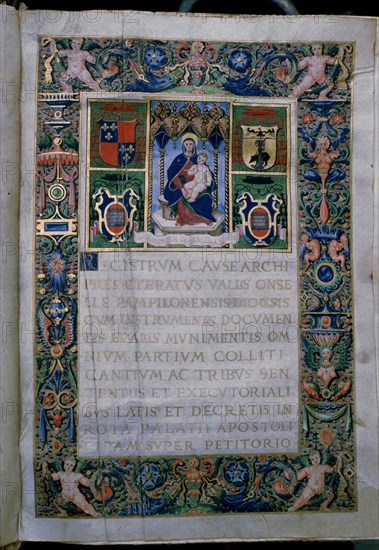 REGISTRVM CAVSE ARCHI
PRESBITERATVS VALIS ONSE
LE PAMPILONENSIS DIOESIS
CVM INSTRVMENTIS DOCVMEN
TIS IVRIS MVNIMENTIS OM
NIVM PARTIVM COLLITI
CANTIVM AC TRIBVS SEN
TENTIIS ET EXECVTORIALI
BVS LATIS ET DECRETIS IN
ROTA PALATII APOSTOLI
CI TAM SVPER PETITORIO